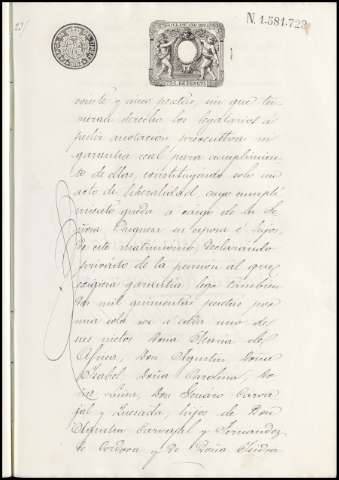 N. 1.581.722
veinte y cinco pesetas, sin que tu-
vieran derecho los legatarios a
pedir anotacion preventiva ni
garantia real para cumplimien-
to de ellas, constituyendo solo un
acto de liberalidad, cuyo cumpli-
miento queda a cargo de la Se-
ñora Duquesa su esposa é hijos
de este matrimonio. Declarando
privados de la pension al que
exigiera garantia; lega tambien
dos mil quinientas pesetas por
una sola vez a cada uno de
sus nietos Doña Maria de
Africa, Don Agustin, Doña
Isabel, Doña Carolina, Do-
ña Luisa, Don Genaro Carva-
jal y Quesada; hijos de Don
Agustin Carvajal y Fernandez
de Cordova y de Doña Isidra